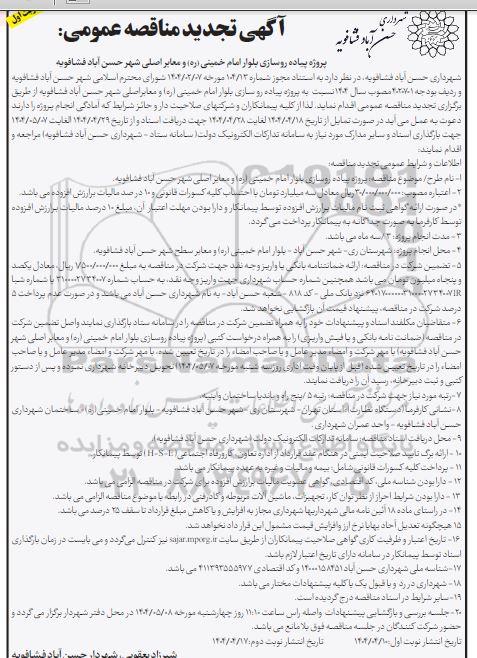 نوبت اول
شهرداری
حسن آباد فشافویه
آگهی تجدید مناقصه عمومی:
پروژه پیاده روسازی بلوار امام خمینی (ره) و معابر اصلی شهر حسن آباد فشافویه
شهرداری حسن آباد فشافویه، در نظر دارد به استناد مجوز شماره ۱۰۴/۱۳ مورخه ۱۴۰۴/۰۲/۰۷ شورای محترم اسلامی شهر حسن آباد فشافویه
و ردیف بودجه ۴۰۲۷۰۰۱ مصوب سال ۱۴۰۴ نسبت به پروژه پیاده رو سازی بلوار امام خمینی (ره) و معابر اصلی شهر حسن آباد فشافویه از طریق
برگزاری تجدید مناقصه عمومی اقدام نماید. لذا از کلیه پیمانکاران و شرکتهای صلاحیت دار و حائز شرایط که آمادگی انجام پروژه را دارند
دعوت به عمل می آید در صورت تمایل از تاریخ ۱۴۰۴/۰۴/۱۸ لغایت ۱۴۰۴/۰۴/۲۸ جهت دریافت اسناد و از تاریخ ۱۴۰۴/۰۴/۲۹ لغایت ۱۴۰۴/۰۵/۰۷
جهت بارگذاری اسناد و سایر مدارک مورد نیاز به سامانه تدارکات الکترونیک دولت (سامانه ستاد - شهرداری حسن آباد فشافویه) مراجعه و
اقدام نمایند:
اطلاعات و شرایط عمومی تجدید مناقصه:
۱- نام طرح / موضوع مناقصه: پروژه پیاده روسازی بلوار امام خمینی (ره) و معابر اصلی شهر حسن آباد فشافویه.
۲- اعتبار مصوب: ۳۰/۰۰۰/۰۰۰/۰۰۰ ریال معادل سه میلیارد تومان با احتساب کلیه کسورات قانونی و ۱۰ درصد مالیات بر ارزش افزوده می باشد.
*در صورت ارائه گواهی ثبت نام مالیات بر ارزش افزوده توسط پیمانکار و دارا بودن مهلت اعتبار آن، مبلغ ۱۰ درصد مالیات بر ارزش افزوده
توسط کارفرما به صورت جداگانه به پیمانکار پرداخت می گردد.
۳- مدت انجام پروژه: ۳ / سه ماه می باشد.
۴- محل انجام پروژه: شهرستان ری - شهر حسن آباد - بلوار امام خمینی (ره) و معابر سطح شهر حسن آباد فشافویه.
۵- تضمین شرکت در مناقصه: ارائه ضمانتنامه بانکی یا واریز وجه نقد جهت شرکت در مناقصه به مبلغ ۱/۵۰۰/۰۰۰/۰۰۰ ریال، معادل یکصد
و پنجاه میلیون تومان می باشد همچنین شماره حساب شهرداری جهت واریز وجه نقد، به حساب شماره ۳۱۰۰۰۰۲۷۳۴۰۰۷ با شماره شبا
نزد بانک ملی - کد ۸۱۸ - شعبه حسن آباد - به نام شهرداری حسن آباد می باشد و در صورت عدم پرداخت ۵
درصد شرکت در مناقصه، پیشنهاد قیمت آن بازگشایی نخواهد شد.
۶- متقاضیان مکلفند اسناد و پیشنهادات خود را به همراه تضمین شرکت در مناقصه را در سامانه ستاد بارگذاری نمایند و اصل تضمین شرکت
در مناقصه (ضمانت نامه بانکی و یا فیش واریزی) را به همراه درخواست کتبی (پروژه پیاده روسازی بلوار امام خمینی (ره) و معابر اصلی شهر
حسن آباد فشافویه) با مهر شرکت و امضاء مدیر عامل و یا صاحب امضاء را در تاریخ تعیین شده، با مهر شرکت و امضاء مدیر عامل و یا صاحب
امضاء را در تاریخ تعیین شده (قبل از پایان وقت اداری روز سه شنبه مورخه ۱۴۰۴/۰۵/۰۷) تحویل دبیرخانه شهرداری نموده و پس از دستور
کتبی و ثبت دبیرخانه، رسید آن را دریافت نمایند.
۷- رتبه مورد نیاز جهت شرکت در مناقصه: رتبه ۵ / پنج راه و باند یا ساختمان و ابنیه.
۸- نشانی کارفرما (دستگاه نظارت): استان تهران - شهرستان ری - شهر حسن آباد فشافویه - بلوار امام خمینی (ره) - ساختمان شهرداری
حسن آباد فشافویه - واحد عمران شهرداری.
۹- محل دریافت اسناد مناقصه: سامانه تدارکات الکترونیک دولت (شهرداری حسن آباد فشافویه)
۱۰- ارائه برگ تایید صلاحیت ایمنی در هنگام عقد قرارداد از اداره تعاون، کار و رفاه اجتماعی (H-S-E) توسط پیمانکار.
۱۱- پرداخت کلیه کسورات قانونی شامل: بیمه و مالیات و غیره به عهده پیمانکار می باشد.
۱۲- دارا بودن شناسه ملی، کد اقتصادی، گواهی عضویت مالیات بر ارزش افزوده برای شرکت در مناقصه الزامی می باشد.
۱۳- دارا بودن شرایط احراز از نظر توان کار، تجهیزات، ماشین آلات مربوطه و کادر فنی در رابطه با موضوع مناقصه الزامی می باشد.
۱۴- در راستای ماده ۱۸ آئین نامه مالی شهرداریها شهرداری مجاز به افزایش و یا کاهش مبلغ قرارداد تا سقف ۲۵ درصد می باشد.
۱۵ هیچگونه تعدیل آحاد بها یا نرخ ارز و افزایش قیمت مشمول این قرارداد نخواهد شد.
۱۶- تاریخ اعتبار و ظرفیت کاری گواهی صلاحیت پیمانکاران از طریق سایت sajar.mporg.ir نیز کنترل می گردد و می بایست در زمان بارگذاری
اسناد توسط پیمانکار در سامانه دارای تاریخ اعتبار لازم باشد.
۱۷- شناسه ملی شهرداری حسن آباد ۱۴۰۰۰۱۵۸۴۵۱ و کد اقتصادی ۴۱۱۳۹۳۵۵۵۹۷۷ می باشد.
۱۸- شهرداری در رد و یا قبول یک یا کلیه پیشنهادات مختار می باشد.
۱۹- سایر شرایط در اسناد مناقصه درج گردیده است.
۲۰- جلسه بررسی و بازگشایی پیشنهادات واصله راس ساعت ۱۱:۱۰ روز چهارشنبه مورخه ۱۴۰۴/۰۵/۰۸ در محل دفتر شهردار برگزار می گردد و
حضور شرکت کنندگان در جلسه مناقصه فوق بلامانع می باشد.
تاریخ انتشار نوبت اول: ۱۴۰۴/۰۴/۱۰ تاریخ انتشار نوبت دوم: ۱۴۰۴/۰۴/۱۷
شیرزاد یعقوبی - شهردار حسن آباد فشافویه